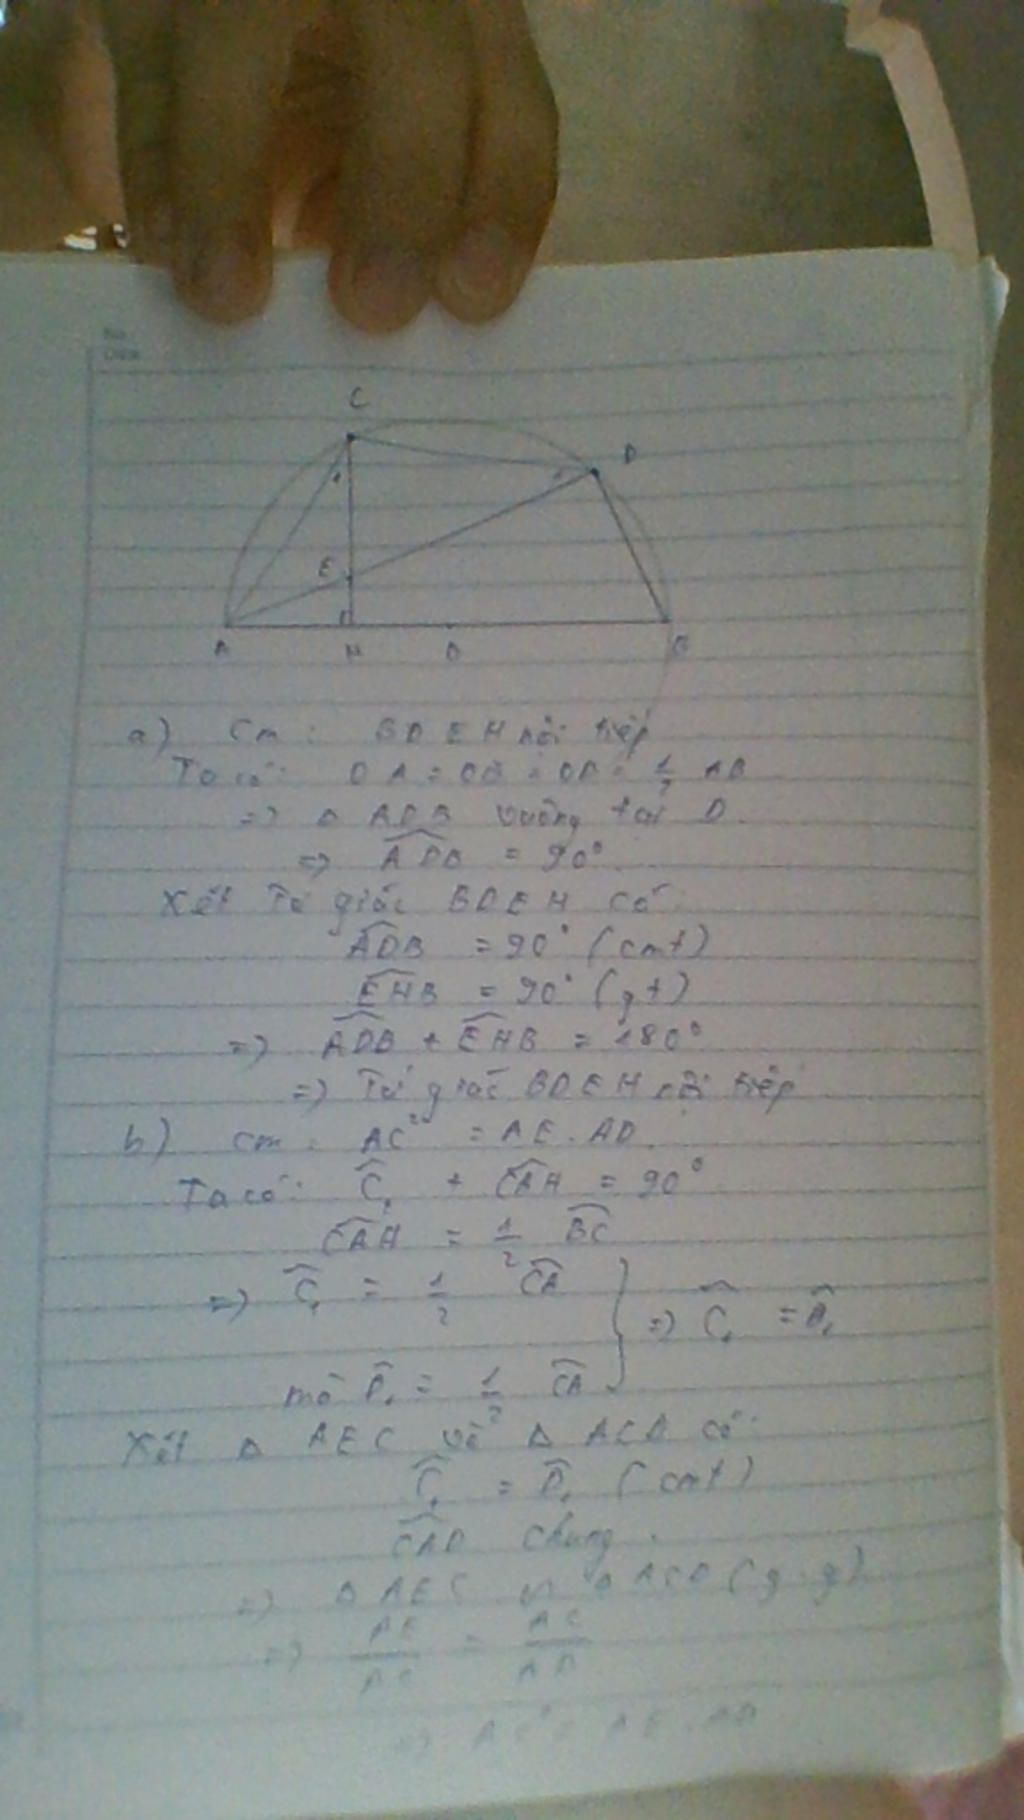 No
Date
C
D
E
A H O B
a) Cm: BDEH nội tiếp
Ta có: OA = OB = OD = 1/2 AB
=> Δ ADB vuông tại D.
=> \widehat{ADB} = 90°
Xét Tứ giác BDEH có:
\widehat{ADB} = 90° (cmt)
\widehat{EHB} = 90° (gt)
=> \widehat{ADB} + \widehat{EHB} = 180°
=> Tứ giác BDEH nội tiếp
b) cm: AC² = AE.AD
Ta có: \widehat{C₁} + \widehat{CAH} = 90°
\widehat{CAH} = 1/2 \widehat{BC}
=> \widehat{C₁} = 1/2 \widehat{CA}
=> \widehat{C₁} = \widehat{D₁}
mà \widehat{D₁} = 1/2 \widehat{CA}
Xét Δ AEC và Δ ACD có:
\widehat{C₁} = \widehat{D₁} (cmt)
\widehat{CAD} chung.
=> Δ AEC ∽ Δ ACD (g.g)
=> AE/AC = AC/AD
=> AC² = AE.AD